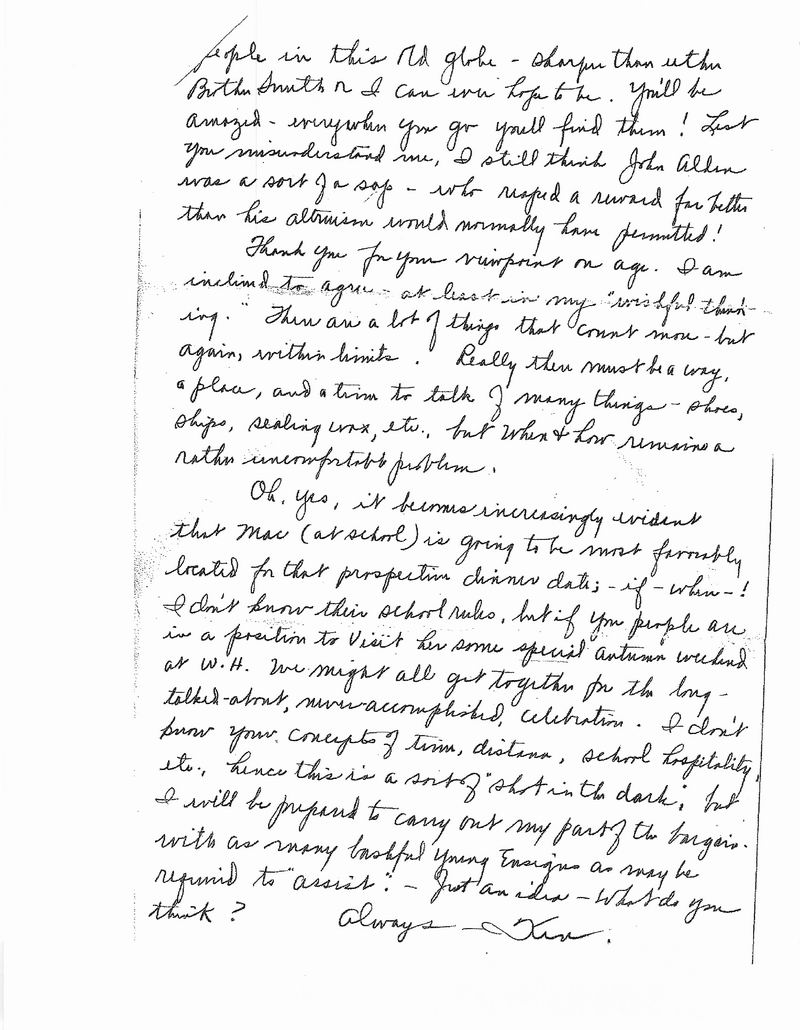 people in this old globe - sharper than either
Brother Smith or I can ever hope to be. You'll be
amazed - everywhere you go you'll find them! Lest
you misunderstand me, I still think John Alden
was a sort of a sap - who reaped a reward far better
than his altruism would normally have permitted!
Thank you for your viewpoint on age. I am
inclined to agree - at least in my "wishful think-
ing." There are a lot of things that count more - but
again, within limits. Really there must be a way,
a place, and a time to talk of many things - shoes,
ships, sealing wax, etc., but when & how remains a
rather uncomfortable problem.
Oh, yes, it becomes increasingly evident
that Mac (at school) is going to be most favorably
located for that prospective dinner date; - if - when - !
I don't know their school rules, but if you people are
in a position to visit her some special autumn weekend
at W.H. We might all get together for the long-
talked-about, never-accomplished, celebration. I don't
know your concepts of time, distance, school hospitality,
etc., hence this is a sort of "shot in the dark", but
I will be prepared to carry out my part of the bargain.
with as many bashful young Ensigns as may be
required to "assist". - Just an idea - What do you
think? Always - Ken.